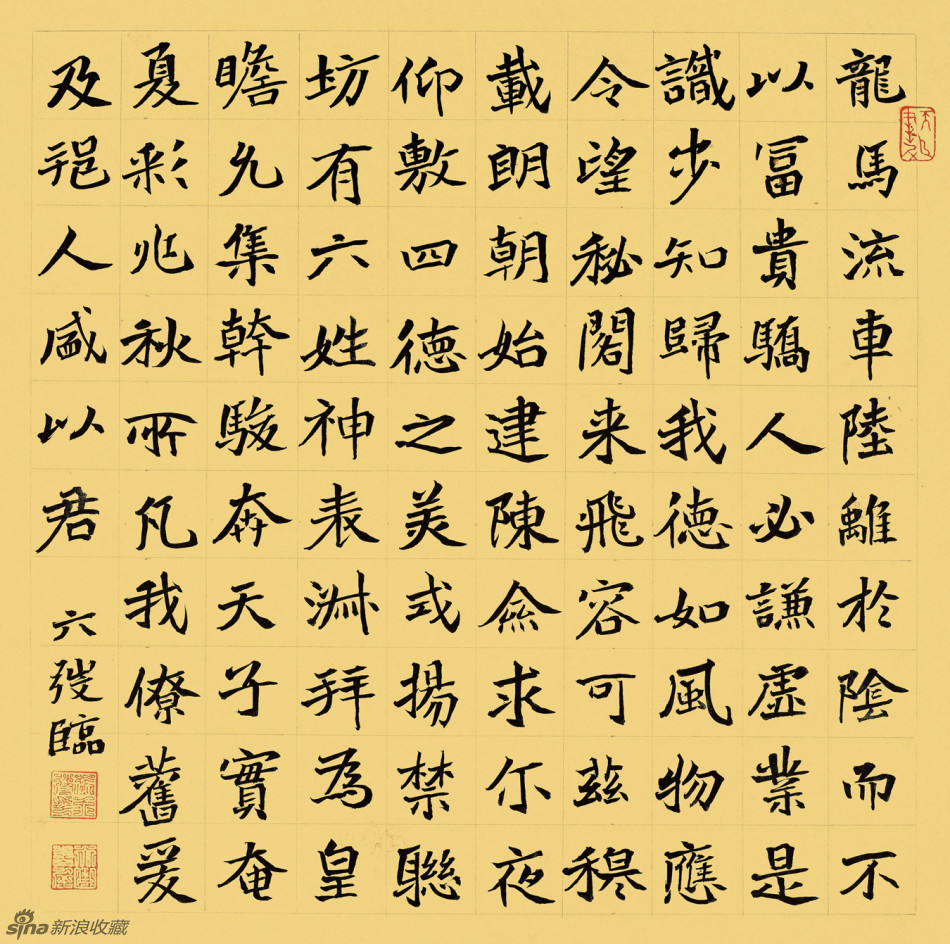 龍馬流車陸離於陰而不
以冨貴驕人必謙虛業是
識步知歸我徳如風物應
令望秘閣来飛容可茲穆
載朗朝始建陳僉求尓夜
仰敷四徳之美式揚禁聯
坊有六姓神表渊拜為皇
瞻允集幹駿奔天子實奄
夏彩兆秋所凡我僚舊爰
及人咸以君
六弢臨
sina新浪收藏